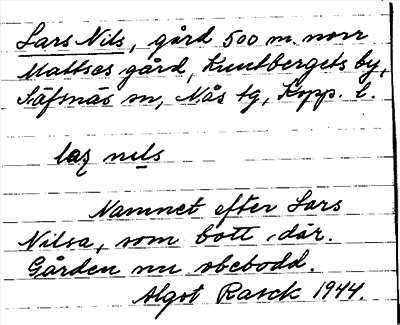 Lars Nils, gård 500 m. norr
Mattses gård, Knutbergets by,
Säfsnäs sn, Nås tg, Kopp. l.
laʒ nils
Namnet efter Lars
Nilsa, som bott där.
Gården nu obebodd.
Algot Rasck 1944.